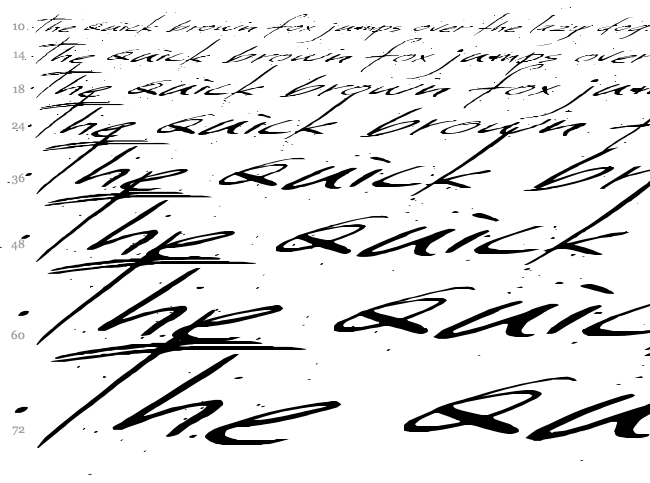 10 The quick brown fox jumps over the lazy dog
14 The quick brown fox jumps over
18 The quick brown fox jum
24 The quick brown f
36 The quick br
48 The quick
60 The quic
72 The qu